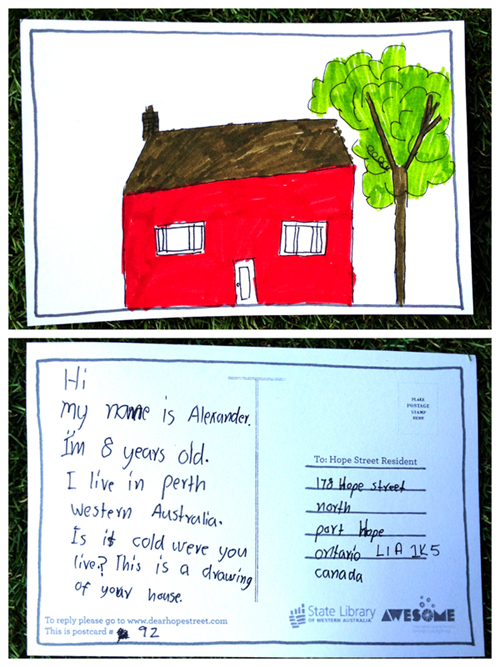 Hi
my name is Alexander.
I'm 8 years old.
I live in perth
western Australia.
Is it cold were you
live? This is a drawing
of your house.
To reply please go to www.dearhopestreet.com
This is postcard # 92
PLACE
POSTAGE
STAMP
HERE
To: Hope Street Resident
178 Hope street
north
port Hope
ontario L1A 1K5
canada
State Library
OF WESTERN AUSTRALIA
AWESOME